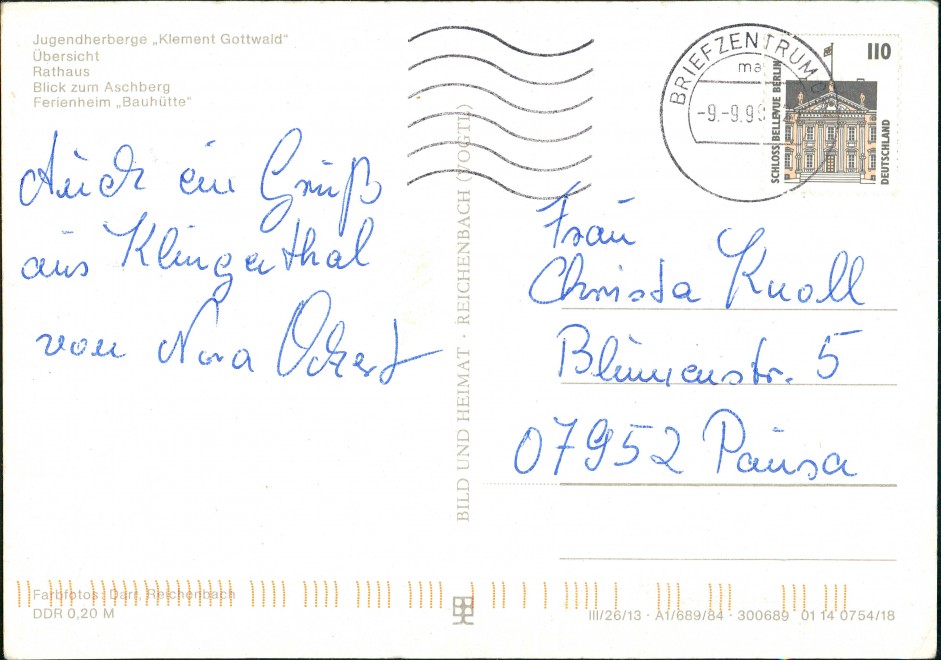 Jugendherberge „Klement Gottwald“
Übersicht
Rathaus
Blick zum Aschberg
Ferienheim „Bauhütte“
Auch ein Gruß
aus Klingenthal
von Nora Ockert
BILD UND HEIMAT · REICHENBACH (VOGTL)
BRIEFZENTRUM
-9.-9.9
110
SCHLOSS BELLEVUE BERLIN
DEUTSCHLAND
Frau
Christa Knoll
Blumenstr. 5
07952 Pausa
Farbfotos: Darr, Reichenbach
DDR 0,20 M
III/26/13 · A1/689/84 · 300689 01 14 0754/18